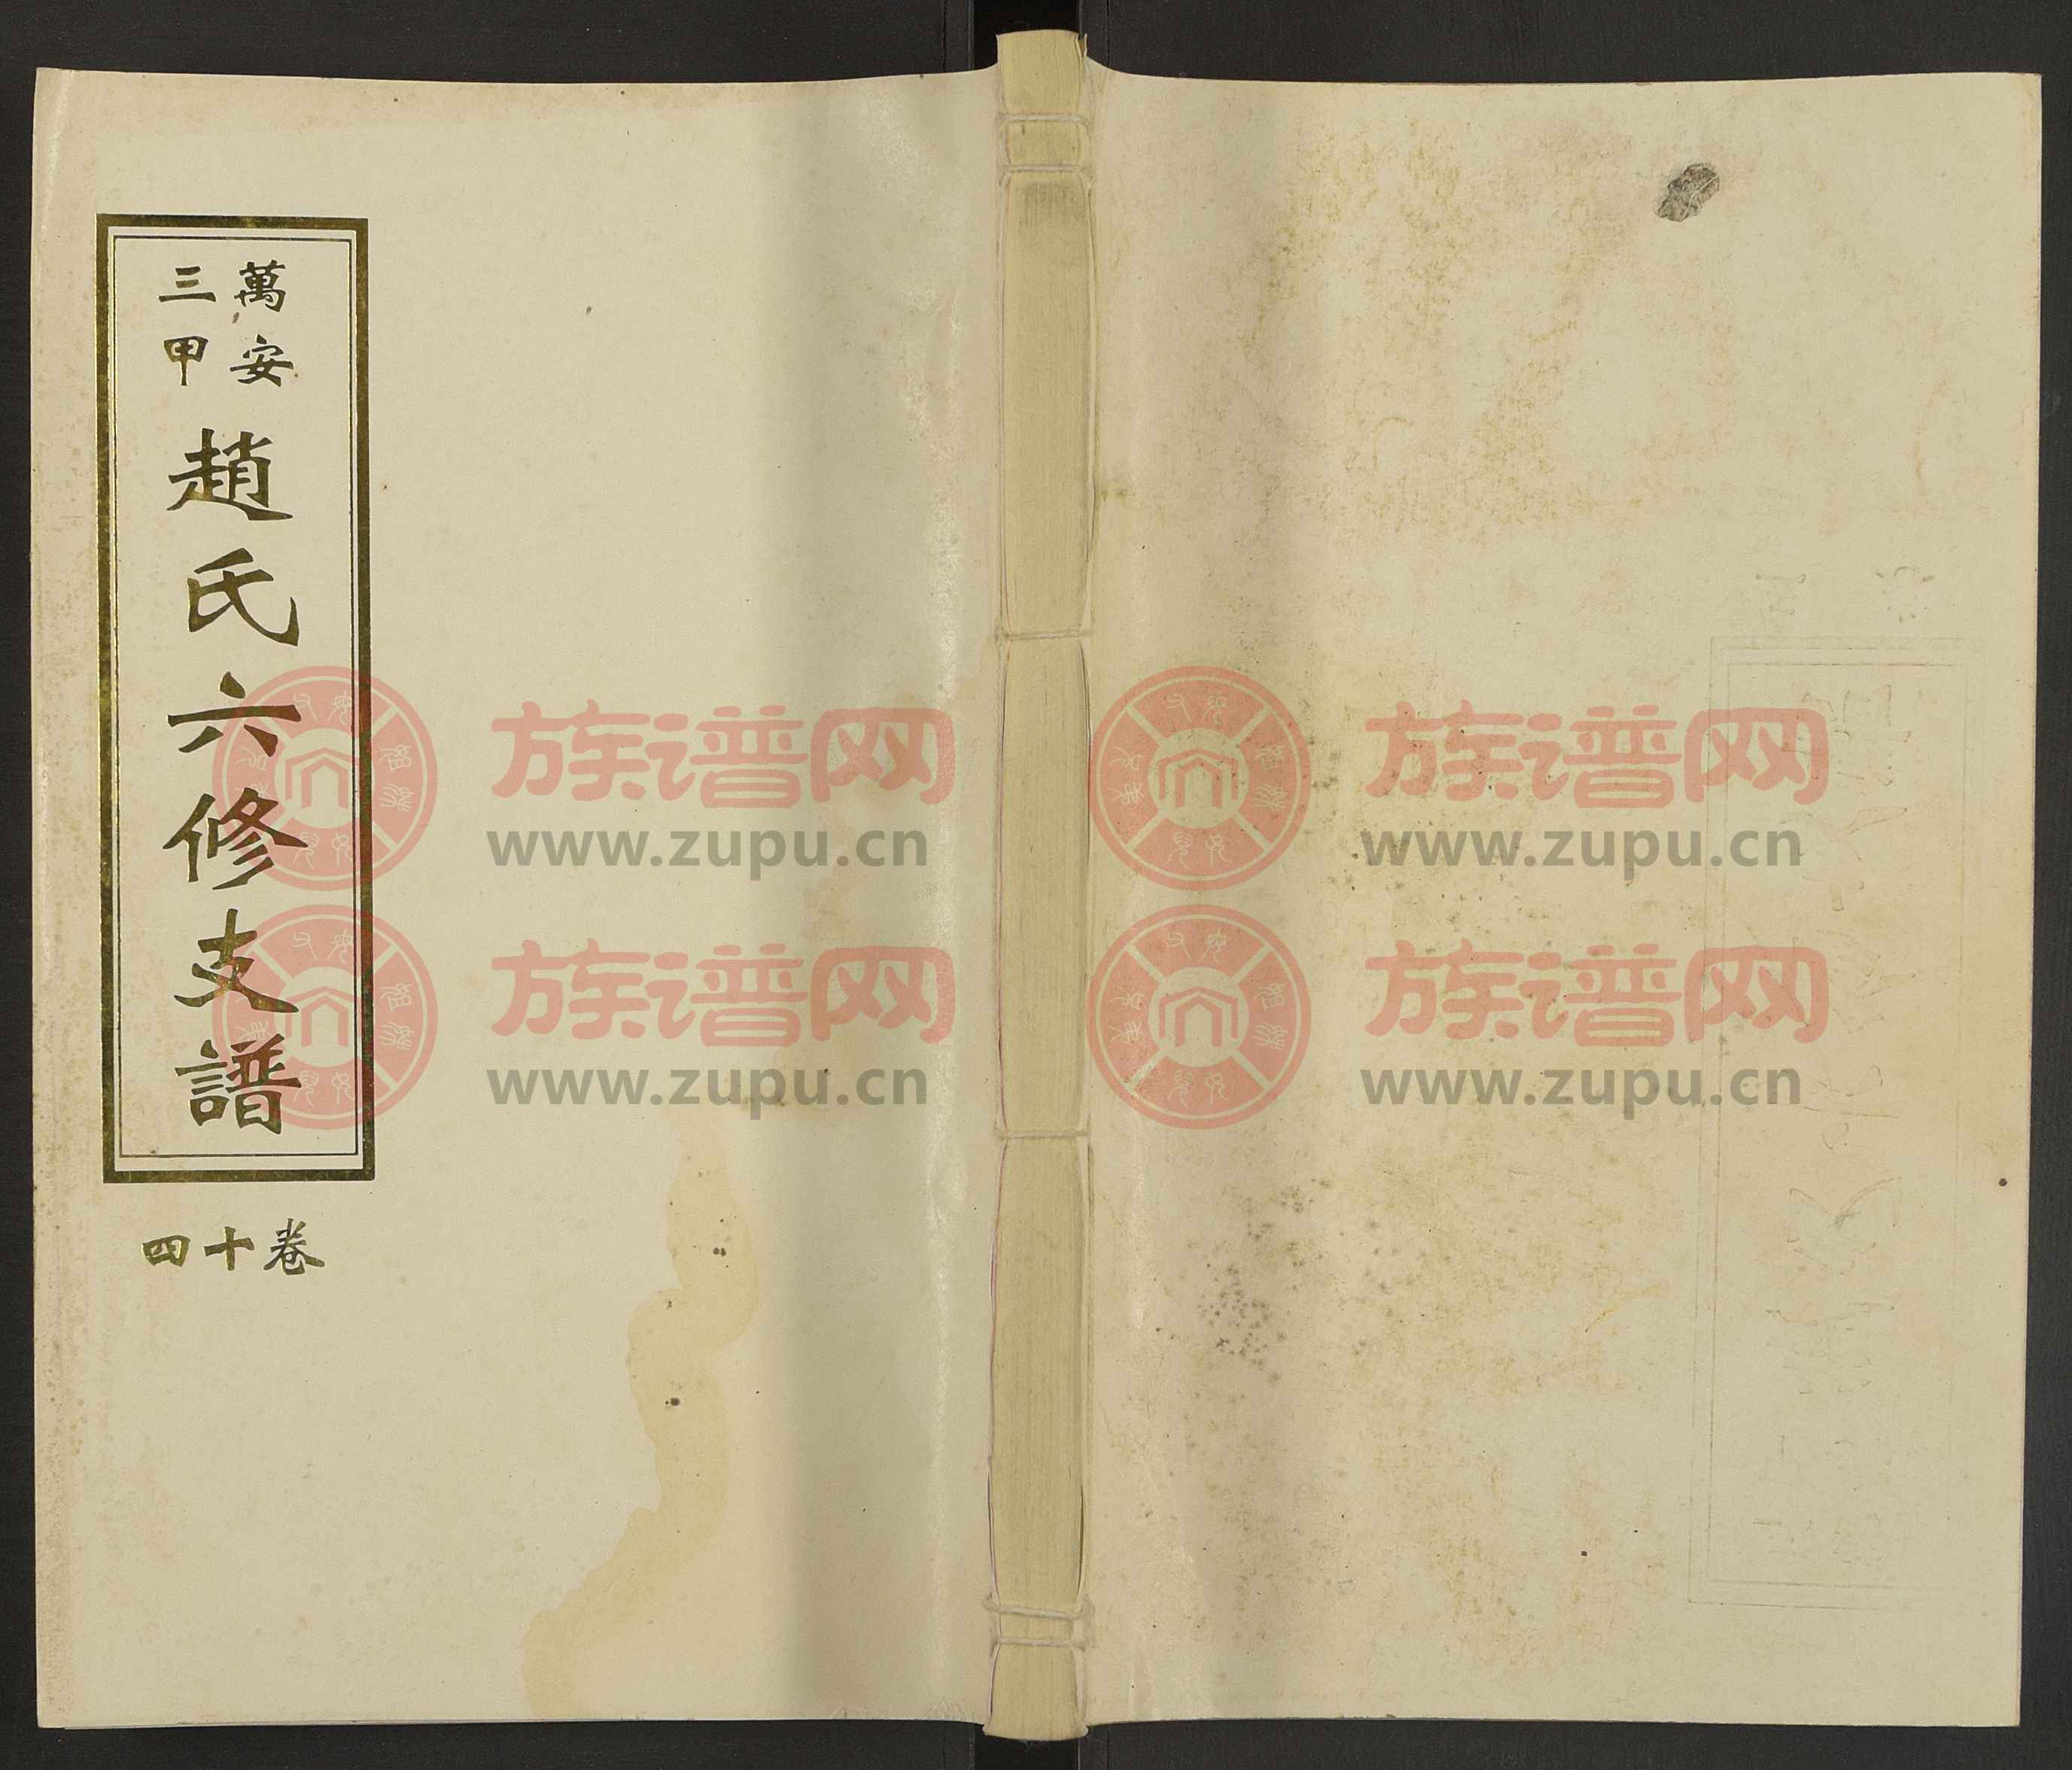 萬安
三甲
趙氏六修支譜
卷十四
族谱网
www.zupu.cn
族谱网
www.zupu.cn
族谱网
www.zupu.cn
族谱网
www.zupu.cn